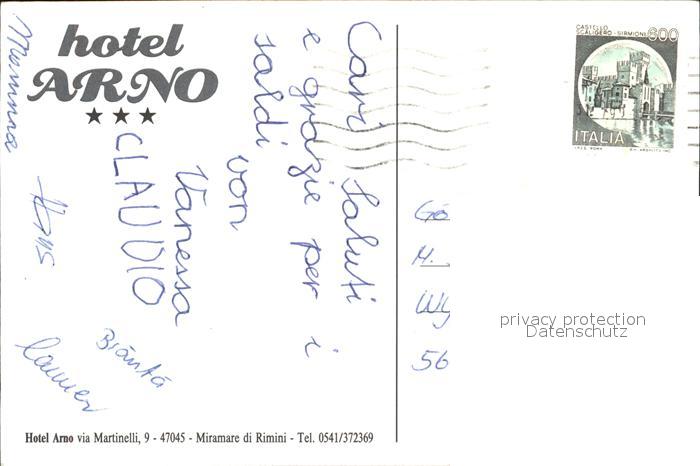 hotel
ARNO
★★★
Cari saluti
e grazie per i
soldi
von
Vanessa
CLAUDIO
CASTELLO
SCALIGERO - SIRMIONE 600
ITALIA
privacy protection
Datenschutz
M.
56
Hotel Arno via Martinelli, 9 - 47045 - Miramare di Rimini - Tel. 0541/372369